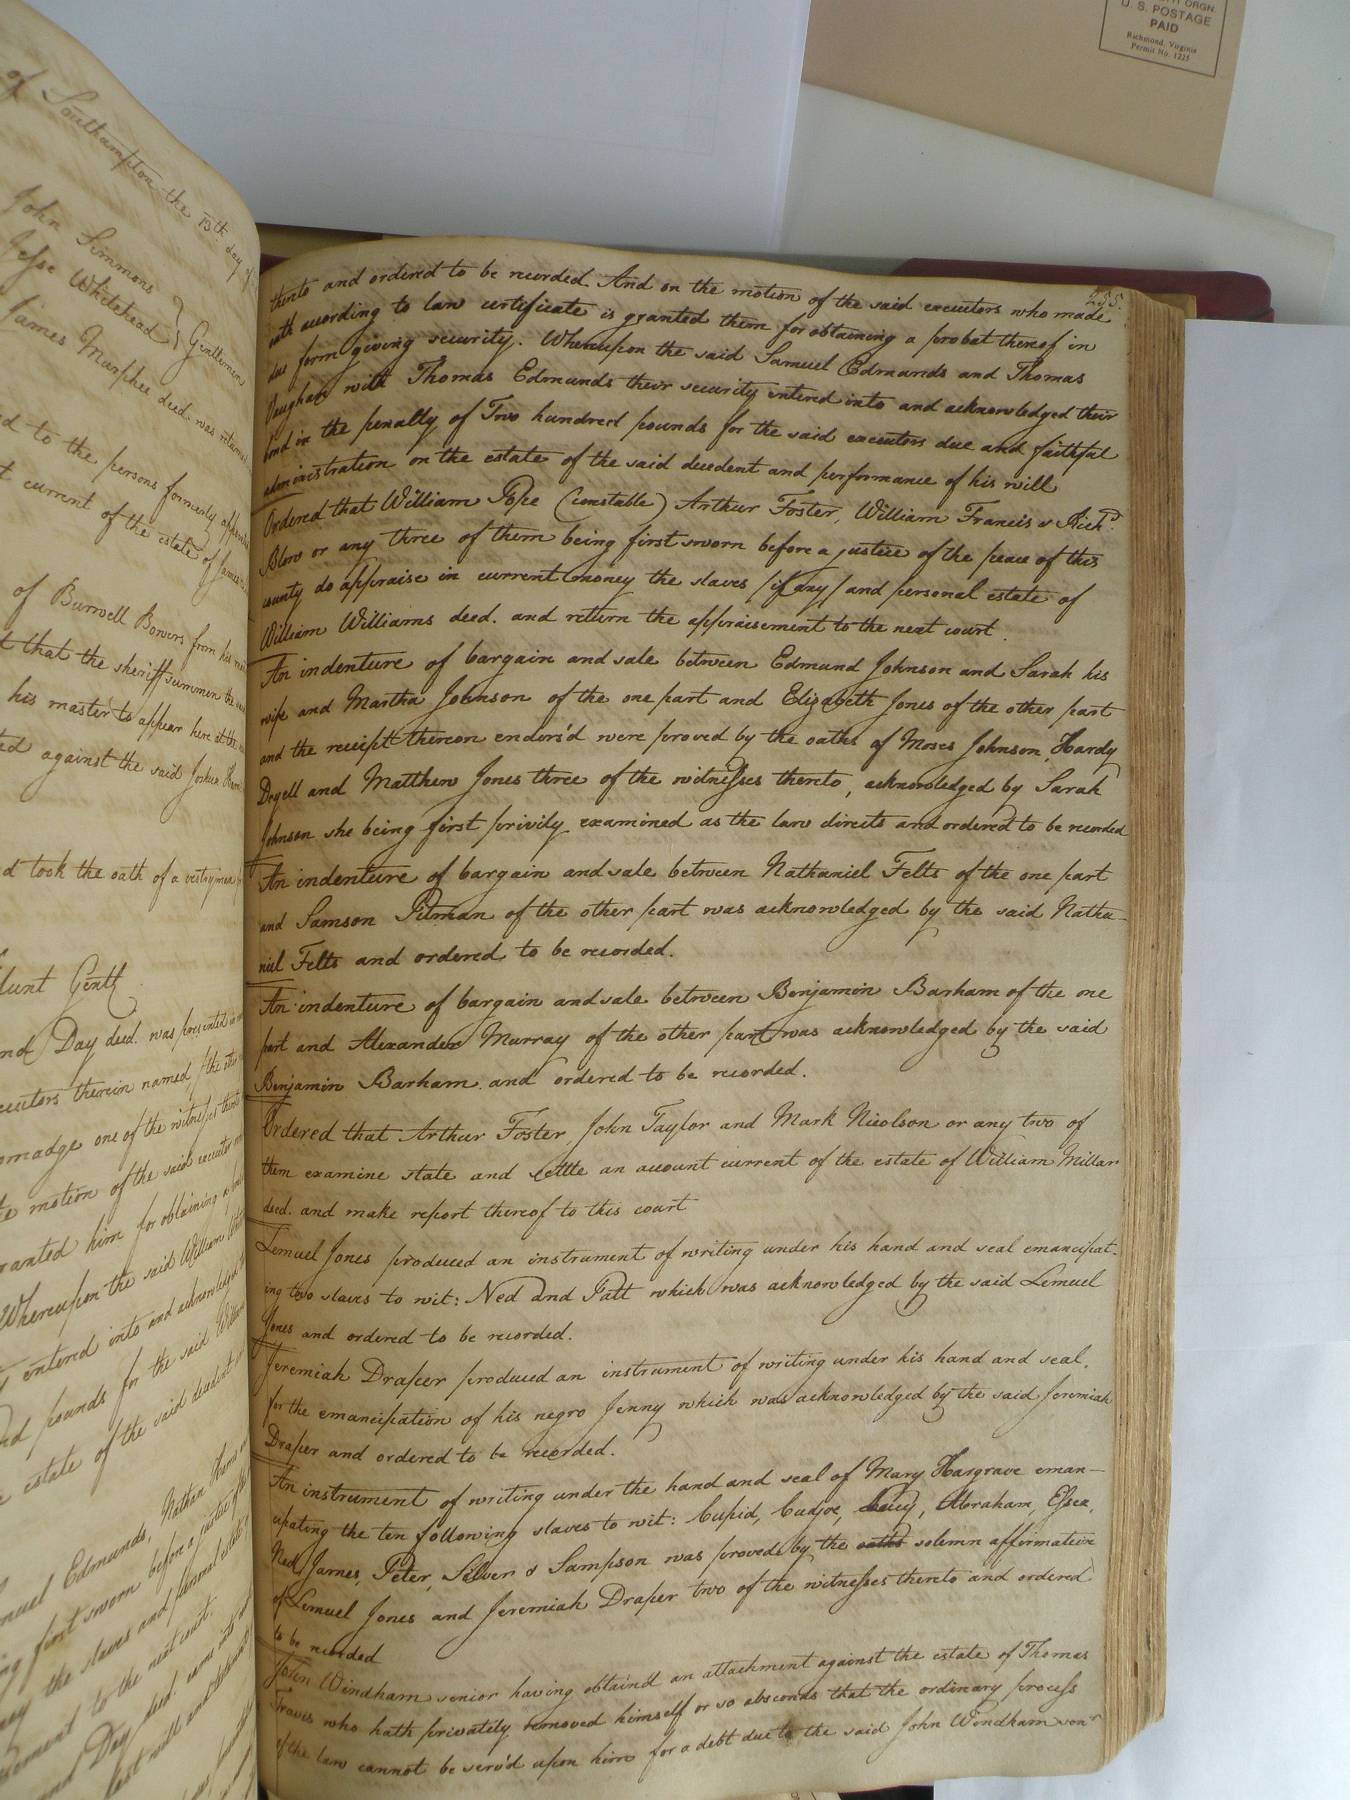 ORGN.
U. S. POSTAGE
PAID
Richmond, Virginia
Permit No. 1225
of Southampton the 13th. day of
John Simmons
Jesse Whitehead
Gentlemen
James Murphee deed. was return
ed to the persons formerly
t current of the estate of James
of Burwell Bowers from his
t that the sheriff summon the
his master to appear here at the
ed against the said Joshua
d took the oath of a vestryman
lunt Gent
nd Day deed. was presented in
ecutors therein named /the
omadge one of the witnesses thereto
e motion of the said executor
ranted him for obtaining a
Whereupon the said William
entered into and acknowledged
nd pounds for the said William
e estate of the said decedent
muel Edmunds, Nathan
ng first sworn before a justice of
ey the slaves and personal estate
sement to the next court.
and Day deed. came into
last will and testament
235.
thereto and ordered to be recorded. And on the motion of the said executors who made
oath according to law certificate is granted them for obtaining a probat thereof in
due form giving security. Whereupon the said Samuel Edmunds and Thomas
Vaughan with Thomas Edmunds their security entered into and acknowledged their
bond in the penalty of Two hundred pounds for the said executors due and faithful
administration on the estate of the said decedent and performance of his will
Ordered that William Pope (constable) Arthur Foster, William Francis & Richd.
Blow or any three of them being first sworn before a justice of the peace of this
county do appraise in current money the slaves /if any/ and personal estate of
William Williams deed. and return the appraisement to the next court.
An indenture of bargain and sale between Edmund Johnson and Sarah his
wife and Martha Johnson of the one part and Elizabeth Jones of the other part
and the receipt thereon endors'd were proved by the oaths of Moses Johnson, Hardy
Deyell and Matthew Jones three of the witnesses thereto, acknowledged by Sarah
Johnson she being first privily examined as the law directs and ordered to be recorded
An indenture of bargain and sale between Nathaniel Felts of the one part
and Samson Pitman of the other part was acknowledged by the said Natha-
niel Felts and ordered to be recorded.
An indenture of bargain and sale between Benjamin Barham of the one
part and Alexander Murray of the other part was acknowledged by the said
Benjamin Barham and ordered to be recorded.
Ordered that Arthur Foster, John Taylor and Mark Nicolson or any two of
them examine state and settle an account current of the estate of William Millar
deed. and make report thereof to this court
Lemuel Jones produced an instrument of writing under his hand and seal emancipat-
ing two slaves to wit: Ned and Patt which was acknowledged by the said Lemuel
Jones and ordered to be recorded.
Jeremiah Draper produced an instrument of writing under his hand and seal,
for the emancipation of his negro Jenny which was acknowledged by the said Jeremiah
Draper and ordered to be recorded.
An instrument of writing under the hand and seal of Mary Hargrave eman-
cipating the ten following slaves to wit: Cupid, Cudjoe, Lucy, Abraham, Essex,
Ned, James, Peter, Silver & Sampson was proved by the oaths solemn affirmation
of Lemuel Jones and Jeremiah Draper two of the witnesses thereto and ordered
to be recorded
John Windham senior having obtain'd an attachment against the estate of Thomas
Travis who hath privately removed himself or so absconds that the ordinary process
of the law cannot be serv'd upon him for a debt due to the said John Windham senr